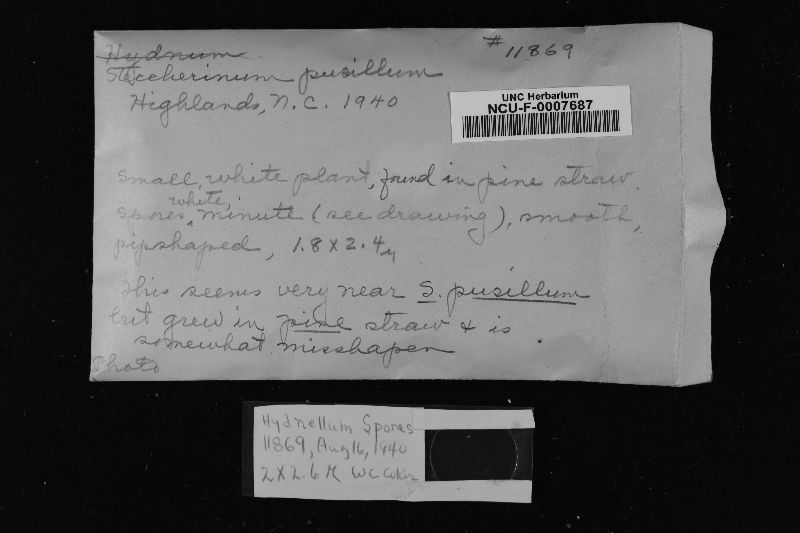 Hydnum
# 11869
Steccherinum pusillum
Highlands, N.C. 1940
UNC Herbarium
NCU-F-0007687
Small, white plant, found in pine straw.
Spores white, minute (see drawing), smooth,
pipshaped, 1.8 x 2.4 µ
This seems very near S. pusillum
but grew in pine straw & is
somewhat misshapen
Photo
Hydnellum Spores
11869, Aug 16, 1940
2 x 2.6 µ WC Coker